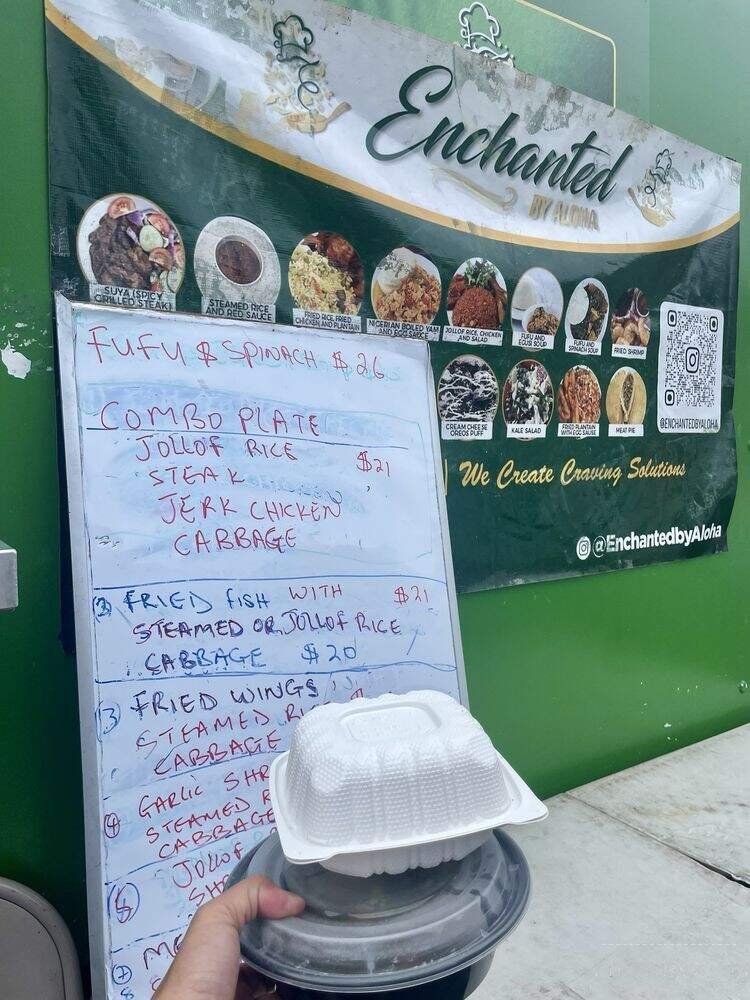 Enchanted
BY ALOHA
SUYA (SPICY
GRILLED STEAK)
STEAMED RICE
AND RED SAUCE
FRIED RICE, FRIED
CHICKEN AND PLANTAIN
NIGERIAN BOILED YAM
AND EGG SAUCE
JOLLOF RICE, CHICKEN
AND SALAD
FUFU AND
EGUSI SOUP
FUFU AND
SPINACH SOUP
FRIED SHRIMP
CREAM CHEESE
OREOS PUFF
KALE SALAD
FRIED PLANTAIN
WITH EGG SAUCE
MEAT PIE
@ENCHANTEDBYALOHA
We Create Craving Solutions
@EnchantedbyAloha
FUFU & SPINACH $26
COMBO PLATE
JOLLOF RICE $21
STEAK
JERK CHICKEN
CABBAGE
2 FRIED FISH WITH $21
STEAMED OR JOLLOF RICE
CABBAGE $20
3 FRIED WINGS
STEAMED
CABBAGE
4 GARLIC
STEAMED
CABBAGE
JOLLOF